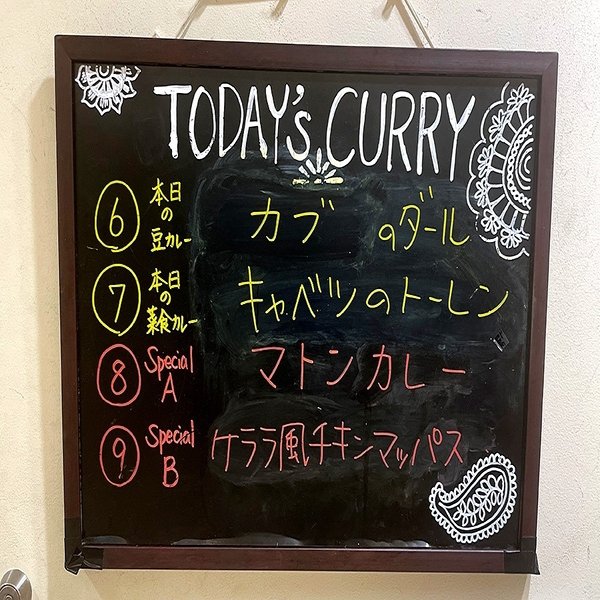 TODAY's CURRY
⑥ 本日の豆カレー カブ のダール
⑦ 本日の菜食カレー キャベツのトーレン
⑧ Special A マトンカレー
⑨ Special B ケララ風チキンマッパス